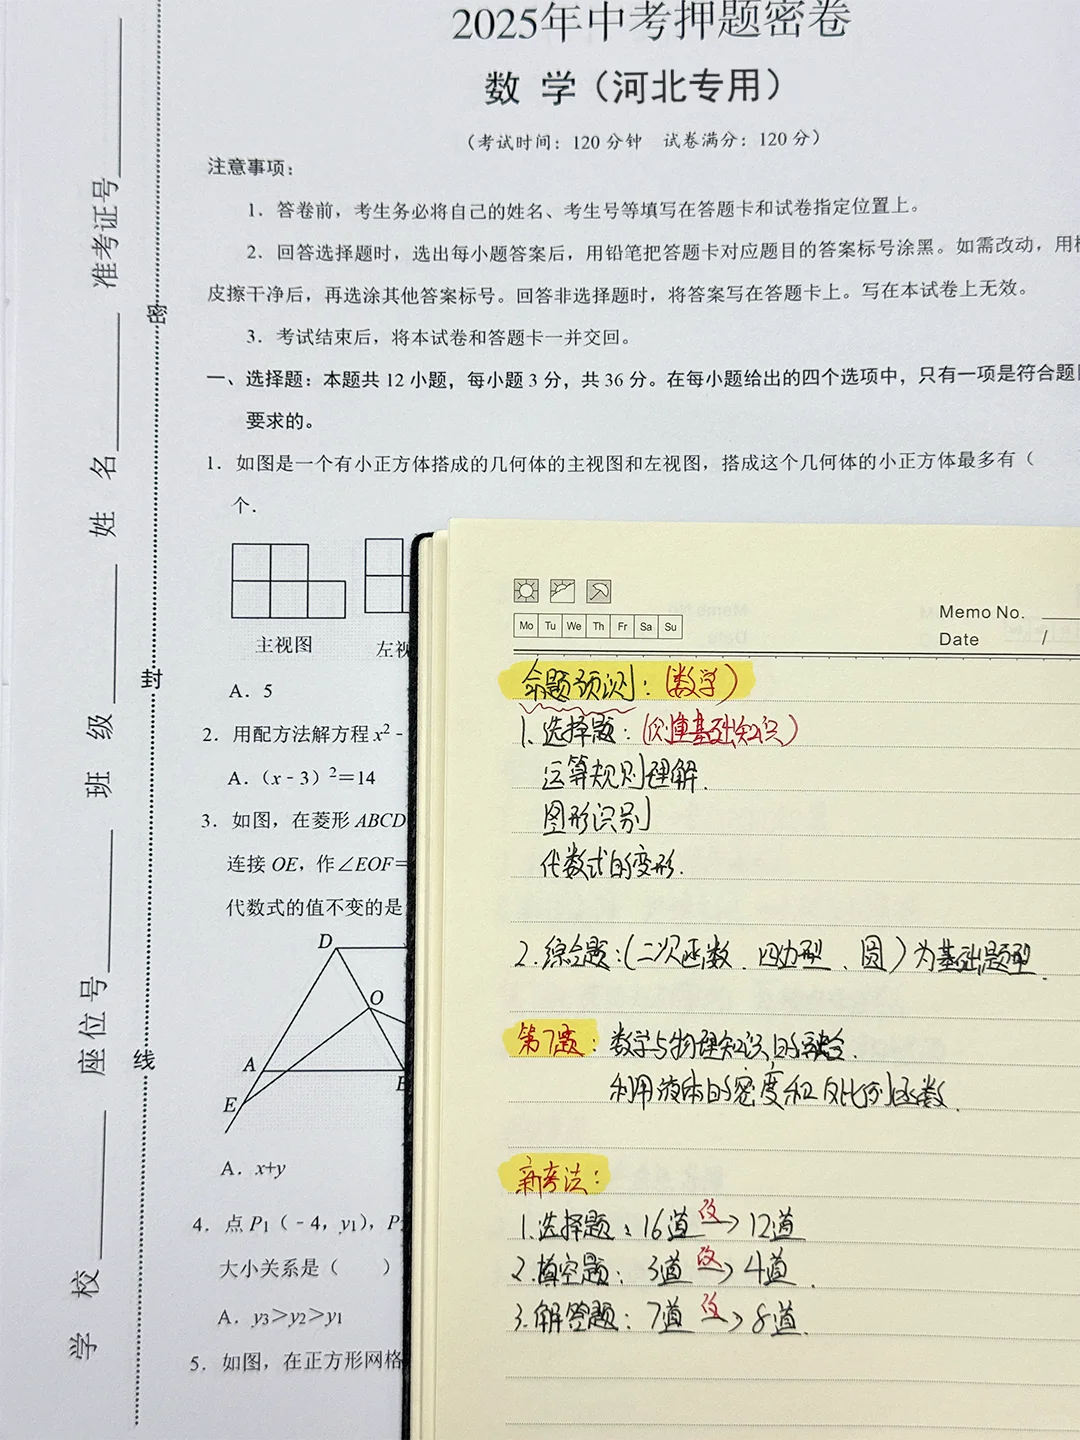 2025年中考押题密卷
数 学（河北专用）
（考试时间：120 分钟 试卷满分：120 分）
注意事项：
1．答卷前，考生务必将自己的姓名、考生号等填写在答题卡和试卷指定位置上。
2．回答选择题时，选出每小题答案后，用铅笔把答题卡对应题目的答案标号涂黑。如需改动，用
皮擦干净后，再选涂其他答案标号。回答非选择题时，将答案写在答题卡上。写在本试卷上无效。
3．考试结束后，将本试卷和答题卡一并交回。
一、选择题：本题共 12 小题，每小题 3 分，共 36 分。在每小题给出的四个选项中，只有一项是符合题
要求的。
1．如图是一个有小正方体搭成的几何体的主视图和左视图，搭成这个几何体的小正方体最多有（
个．
主视图
左视
A．5
2．用配方法解方程 x²﹣
A．（x﹣3）²＝14
3．如图，在菱形 ABCD
连接 OE，作∠EOF＝
代数式的值不变的是
D
O
A
E
A．x+y
4．点 P₁（﹣4，y₁），P
大小关系是（ ）
A．y₃＞y₂＞y₁
5．如图，在正方形网格
准考证号
姓 名
班 级
座位号
学 校
密
封
线
Mo Tu We Th Fr Sa Su
Memo No.
Date /
命题预测：（数学）
1．选择题：（侧重基础知识）
运算规则理解．
图形识别
代数式的变形．
2．综合题：（二次函数、四边型、圆）为基础题型．
第7题：数学与物理知识的融合．
利用液体的密度和反比例函数．
新考法：
1．选择题：16道 改→ 12道
2．填空题：3道 改→ 4道．
3．解答题：7道 改→ 8道．